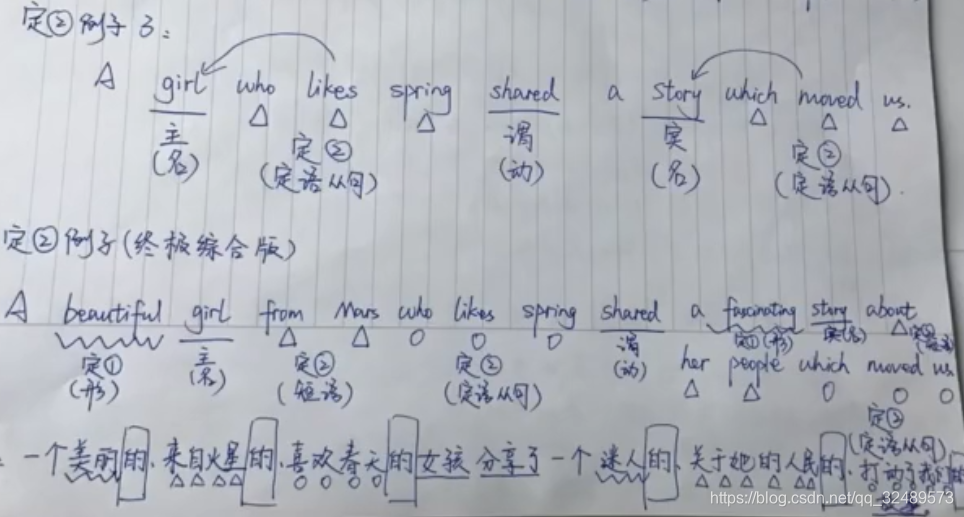 定②例子3:
A girl who likes spring shared a story which moved us.
主 定② 谓 宾 定②
(名) (定语从句) (动) (名) (定语从句).
定②例子(终极综合版)
A beautiful girl from Mars who likes spring shared a fascinating story about
定① 主 定② 定② 谓 定①(形) 宾(名) 定②
(形) (名) (短语) (定语从句) (动) her people which moved us.
定②
(定语从句)
一个美丽的、来自火星的、喜欢春天的女孩分享了一个迷人的、关于她的人民的、打动了我们的
https://blog.csdn.net/qq_32489573